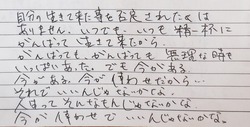 自分の生きて来た事を否定されたくは
ありません。いつでも、いつも精一杯に
がんばって生きて来たから。
がんばっても、がんばっても無理な時も
いっぱいあった。でも今がある。
今がある。今が倖わせだから…
それでいいんじゃないかな。
人生ってそんなもんじゃないかな
今が倖わせでいいんじゃないかな。